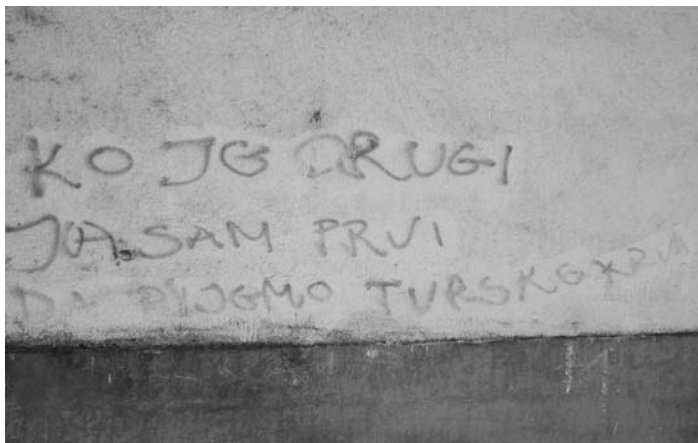 KO JE DRUGI
JA SAM PRVI
DA PIJEMO TURSKE KRVI